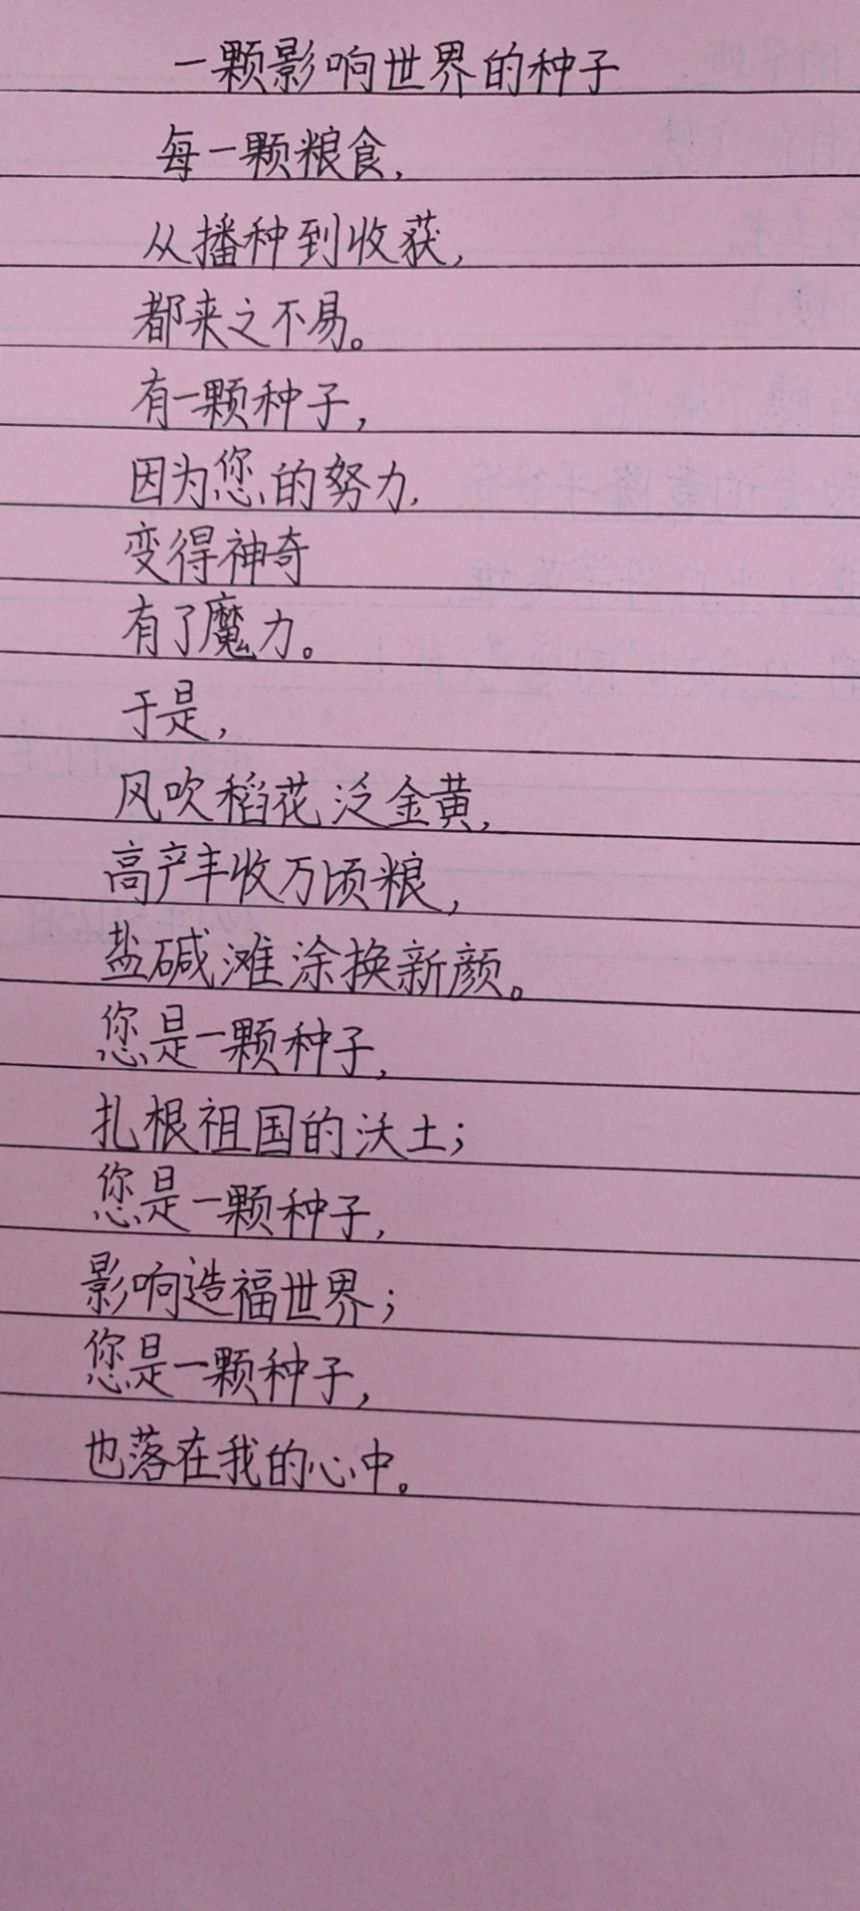 一颗影响世界的种子
每一颗粮食，
从播种到收获，
都来之不易。
有一颗种子，
因为您的努力，
变得神奇
有了魔力。
于是，
风吹稻花泛金黄，
高产丰收万顷粮，
盐碱滩涂换新颜。
您是一颗种子，
扎根祖国的沃土；
您是一颗种子，
影响造福世界；
您是一颗种子，
也落在我的心中。